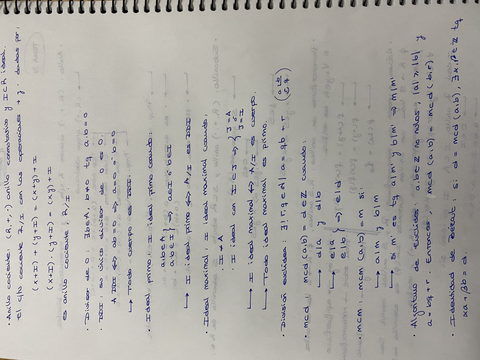 · Anillo cociente: (R,+,·) anillo conmutativo y I⊂R ideal.
el cjto cociente R/I con las operaciones + y · dadas por:
(x+I)+(y+I) = (x+y)+I
(x+I)·(y+I) = (xy)+I
es anillo cociente: R/I
· Divisor de 0: ∃b∈A, b≠0 tq a·b=0
único divisor de 0 es 0:
ab=0 ⇒ a=0 ó b=0
→ Todo cuerpo es
· Ideal primo: I ideal primo cuando:
ab∈I } a∈I ó b∈I
→ I ideal primo ⇔ A/I es
· Ideal maximal: I ideal maximal cuando:
I ≠ A
J ideal con I⊂J ⇒ { J=A ó J=I
→ I ideal maximal ⇔ A/I es cuerpo.
→ Todo ideal maximal es primo.
· División euclídea: a = qb + r
· mcd: mcd(a,b) = d ∈ Z cuando:
→ d|a y d|b
→ e|a e|b } ⇒ e|d
· mcm: mcm(a,b) = m si:
→ a|m y b|m
→ Si m' es tq a|m' y b|m' ⇒ m|m'
· Algoritmo de Euclides: a,b∈Z no nulos, |a|≥|b| y
a = bq+r. Entonces, mcd(a,b) = mcd(b,r).
· Identidad de Bézout: si d = mcd(a,b), ∃α,β∈Z tq
αa+βb = d.